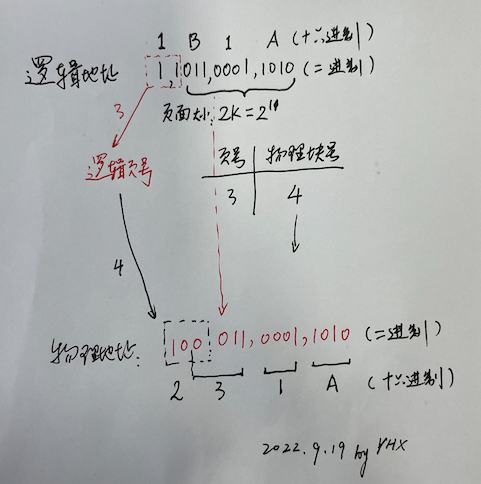 1 B 1 A (十六进制)
逻辑地址 1 1,011,0001,1010 (二进制)
3 页面大小: 2K=2¹¹
逻辑页号
页号 物理块号
3 4
4
物理地址: 100 011,0001,1010 (二进制)
2 3 1 A (十六进制)
2022.9.19 by YHX